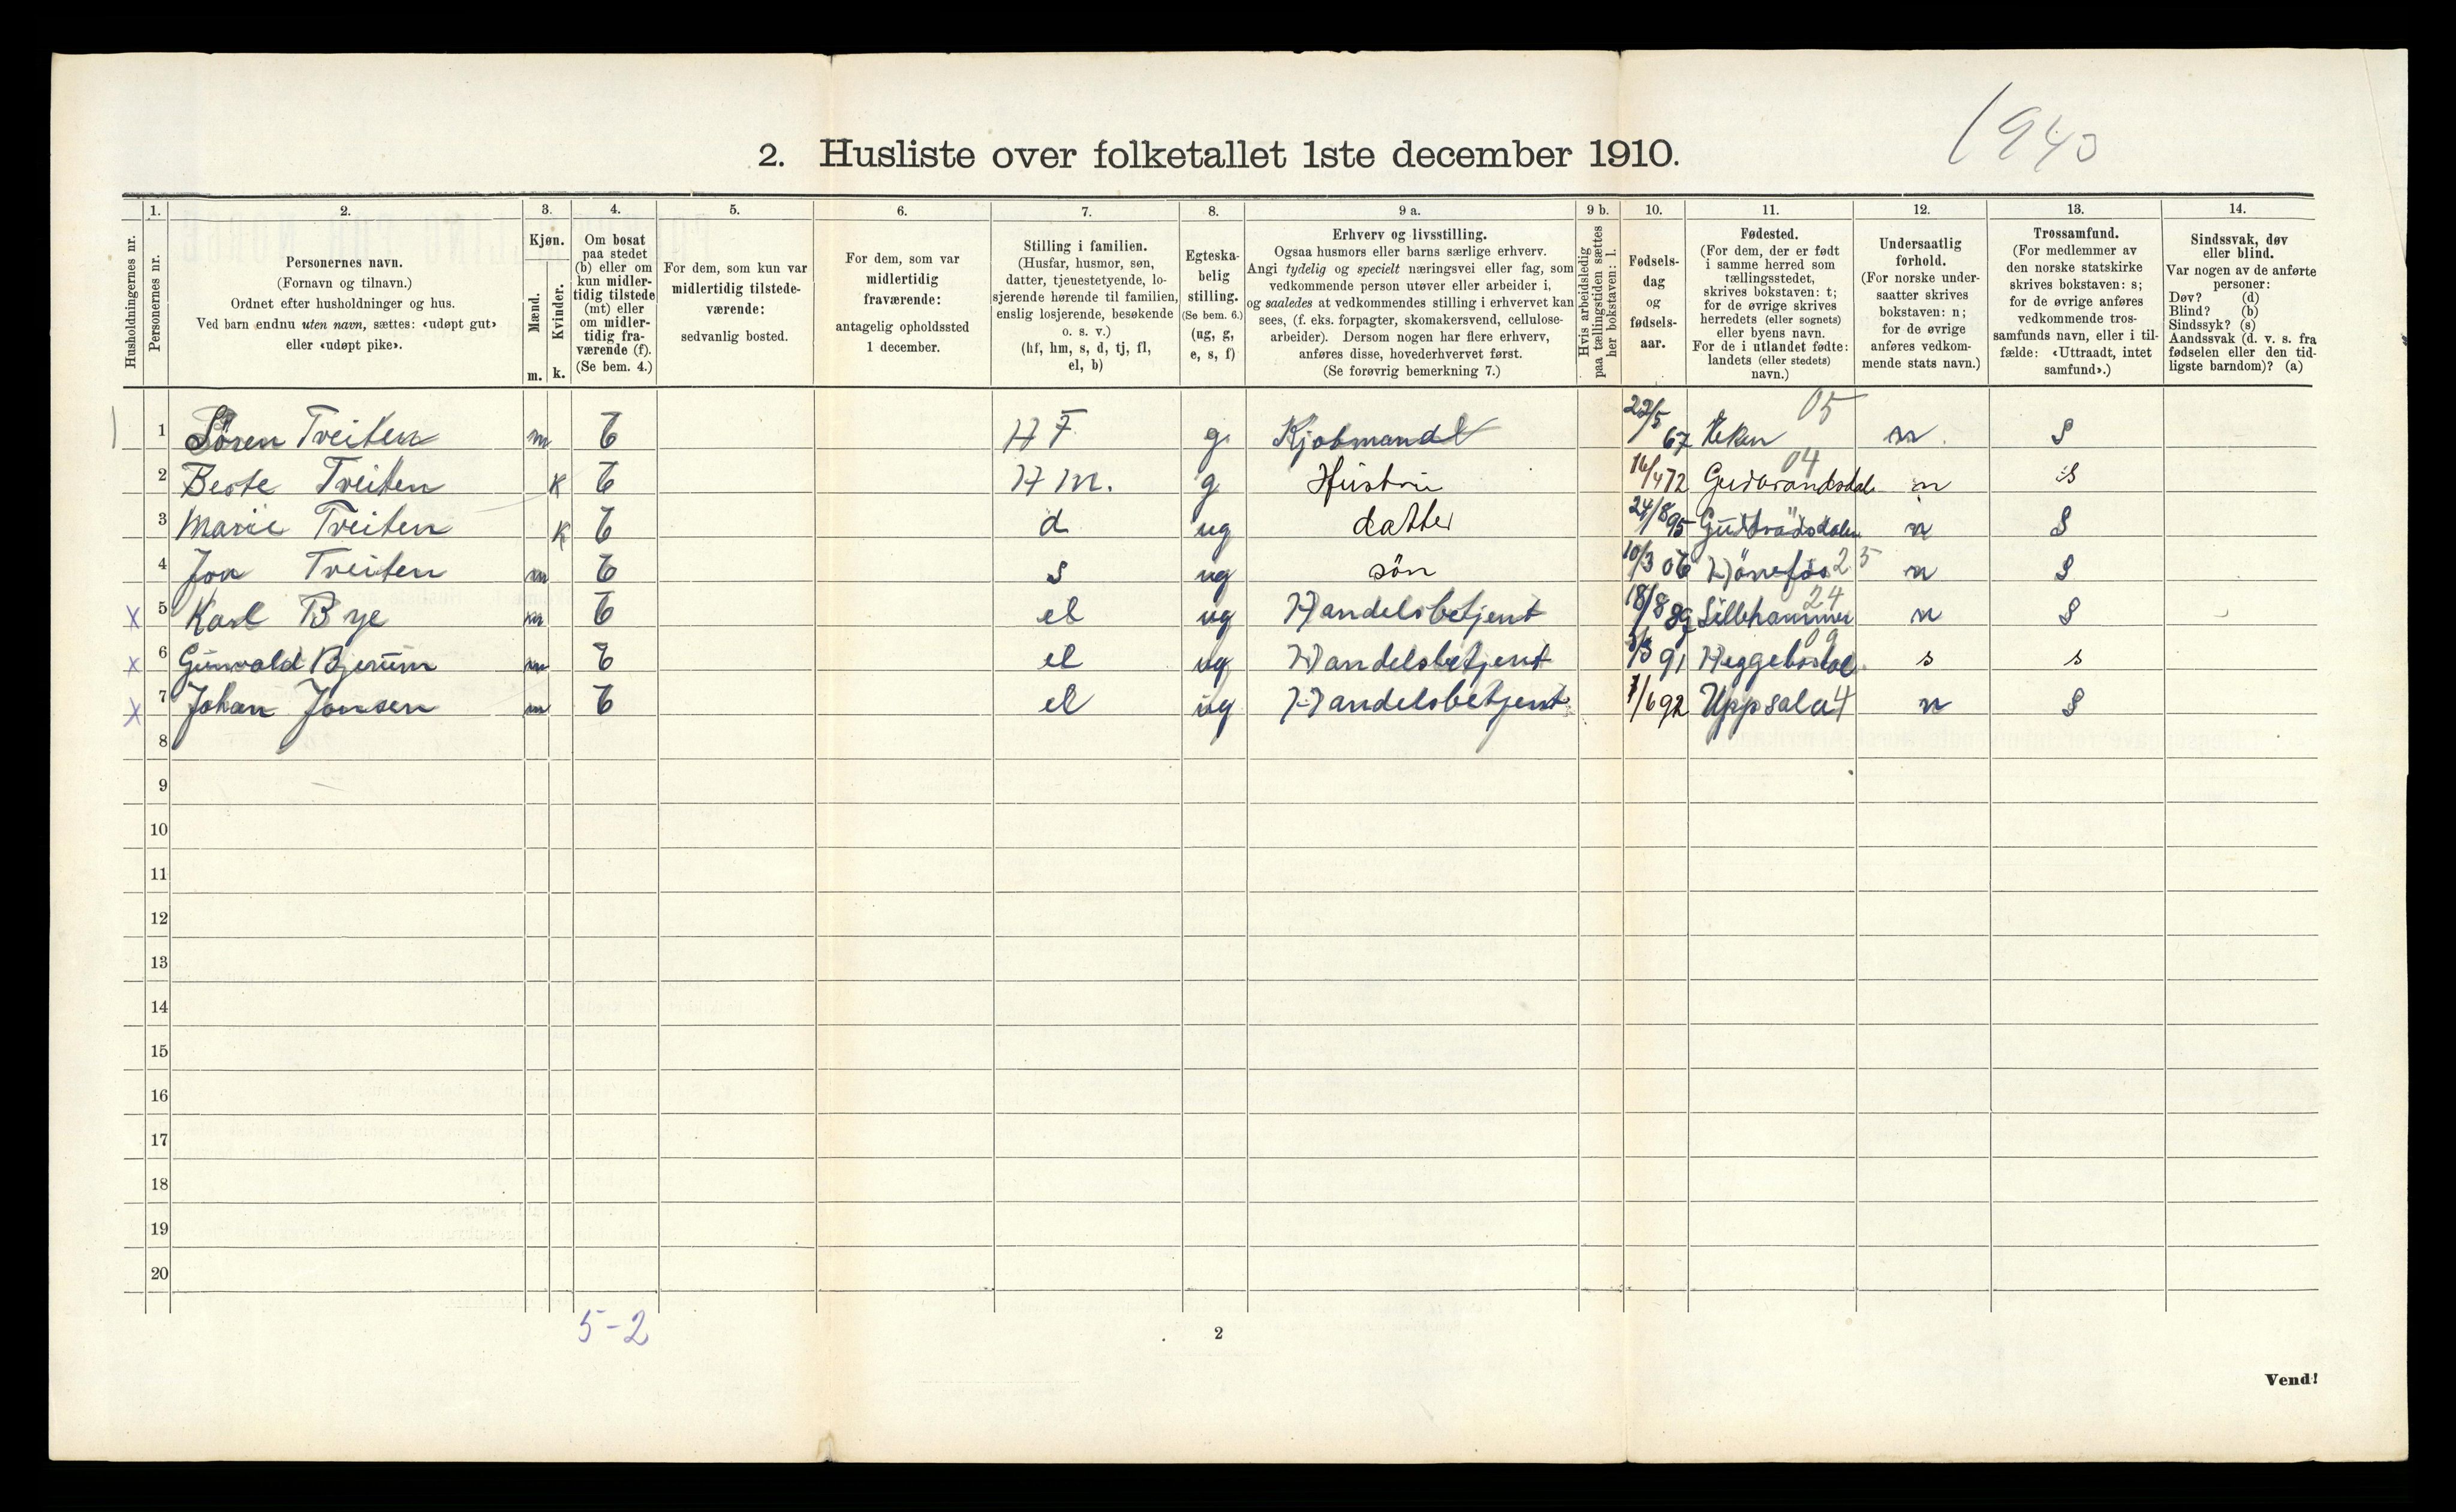 1940
2. Husliste over folketallet 1ste december 1910.
Husholdningernes nr.
1. Personernes nr.
2. Personernes navn.
(Fornavn og tilnavn.)
Ordnet efter husholdninger og hus.
Ved barn endnu uten navn, sættes: «udøpt gut»
eller «udøpt pike».
3. Kjøn.
Mænd. m.
Kvinder. k.
4. Om bosat
paa stedet
(b) eller om
kun midler-
tidig tilstede
(mt) eller
om midler-
tidig fra-
værende (f).
(Se bem. 4.)
5. For dem, som kun var
midlertidig tilstede-
værende:
sedvanlig bosted.
6. For dem, som var
midlertidig
fraværende:
antagelig opholdssted
1 december.
7. Stilling i familien.
(Husfar, husmor, søn,
datter, tjenestetyende, lo-
sjerende hørende til familien,
enslig losjerende, besøkende
o. s. v.)
(hf, hm, s, d, tj, fl,
el, b)
8. Egteska-
belig
stilling.
(Se bem. 6.)
(ug, g,
e, s, f)
9 a. Erhverv og livsstilling.
Ogsaa husmors eller barns særlige erhverv.
Angi tydelig og specielt næringsvei eller fag, som
vedkommende person utøver eller arbeider i,
og saaledes at vedkommendes stilling i erhvervet kan
sees, (f. eks. forpagter, skomakersvend, cellulose-
arbeider). Dersom nogen har flere erhverv,
anføres disse, hovederhvervet først.
(Se forøvrig bemerkning 7.)
9 b. Hvis arbeidsledig
paa tællingstiden sættes
her bokstaven: l.
10. Fødsels-
dag
og
fødsels-
aar.
11. Fødested.
(For dem, der er født
i samme herred som
tællingsstedet,
skrives bokstaven: t;
for de øvrige skrives
herredets (eller sognets)
eller byens navn.
For de i utlandet fødte:
landets (eller stedets)
navn.)
12. Undersaatlig
forhold.
(For norske under-
saatter skrives
bokstaven: n;
for de øvrige
anføres vedkom-
mende stats navn.)
13. Trossamfund.
(For medlemmer av
den norske statskirke
skrives bokstaven: s;
for de øvrige anføres
vedkommende tros-
samfunds navn, eller i til-
fælde: «Uttraadt, intet
samfund».)
14. Sindssvak, døv
eller blind.
Var nogen av de anførte
personer:
Døv? (d)
Blind? (b)
Sindssyk? (s)
Aandssvak (d. v. s. fra
fødselen eller den tid-
ligste barndom)? (a)
1 Sören Treiten m b HF g. Kjobmandl 22/5 67 05 n. S
2 Beate Treiten k b Hm. g Hustru 16/4 72 Gudbrandsdal 04 n S
3 Marie Treiten k b d ug datter 24/8 95 Gudbrandsdalen n S
4 Jon Treiten m b s ug sön 10/3 06 Hönefos 25 n S
x 5 Karl Bye m b el ug Handelsbetjent 18/8 89 Lillehammer 24 n S
x 6 Gunvald Bjerum m b el ug Handelsbetjent 91 09 s s
x 7 Johan Jonsen m b el ug Handelsbetjent 1/6 92 Uppsala 4 n S
8
9
10
11
12
13
14
15
16
17
18
19
20
5-2
2
Vend!